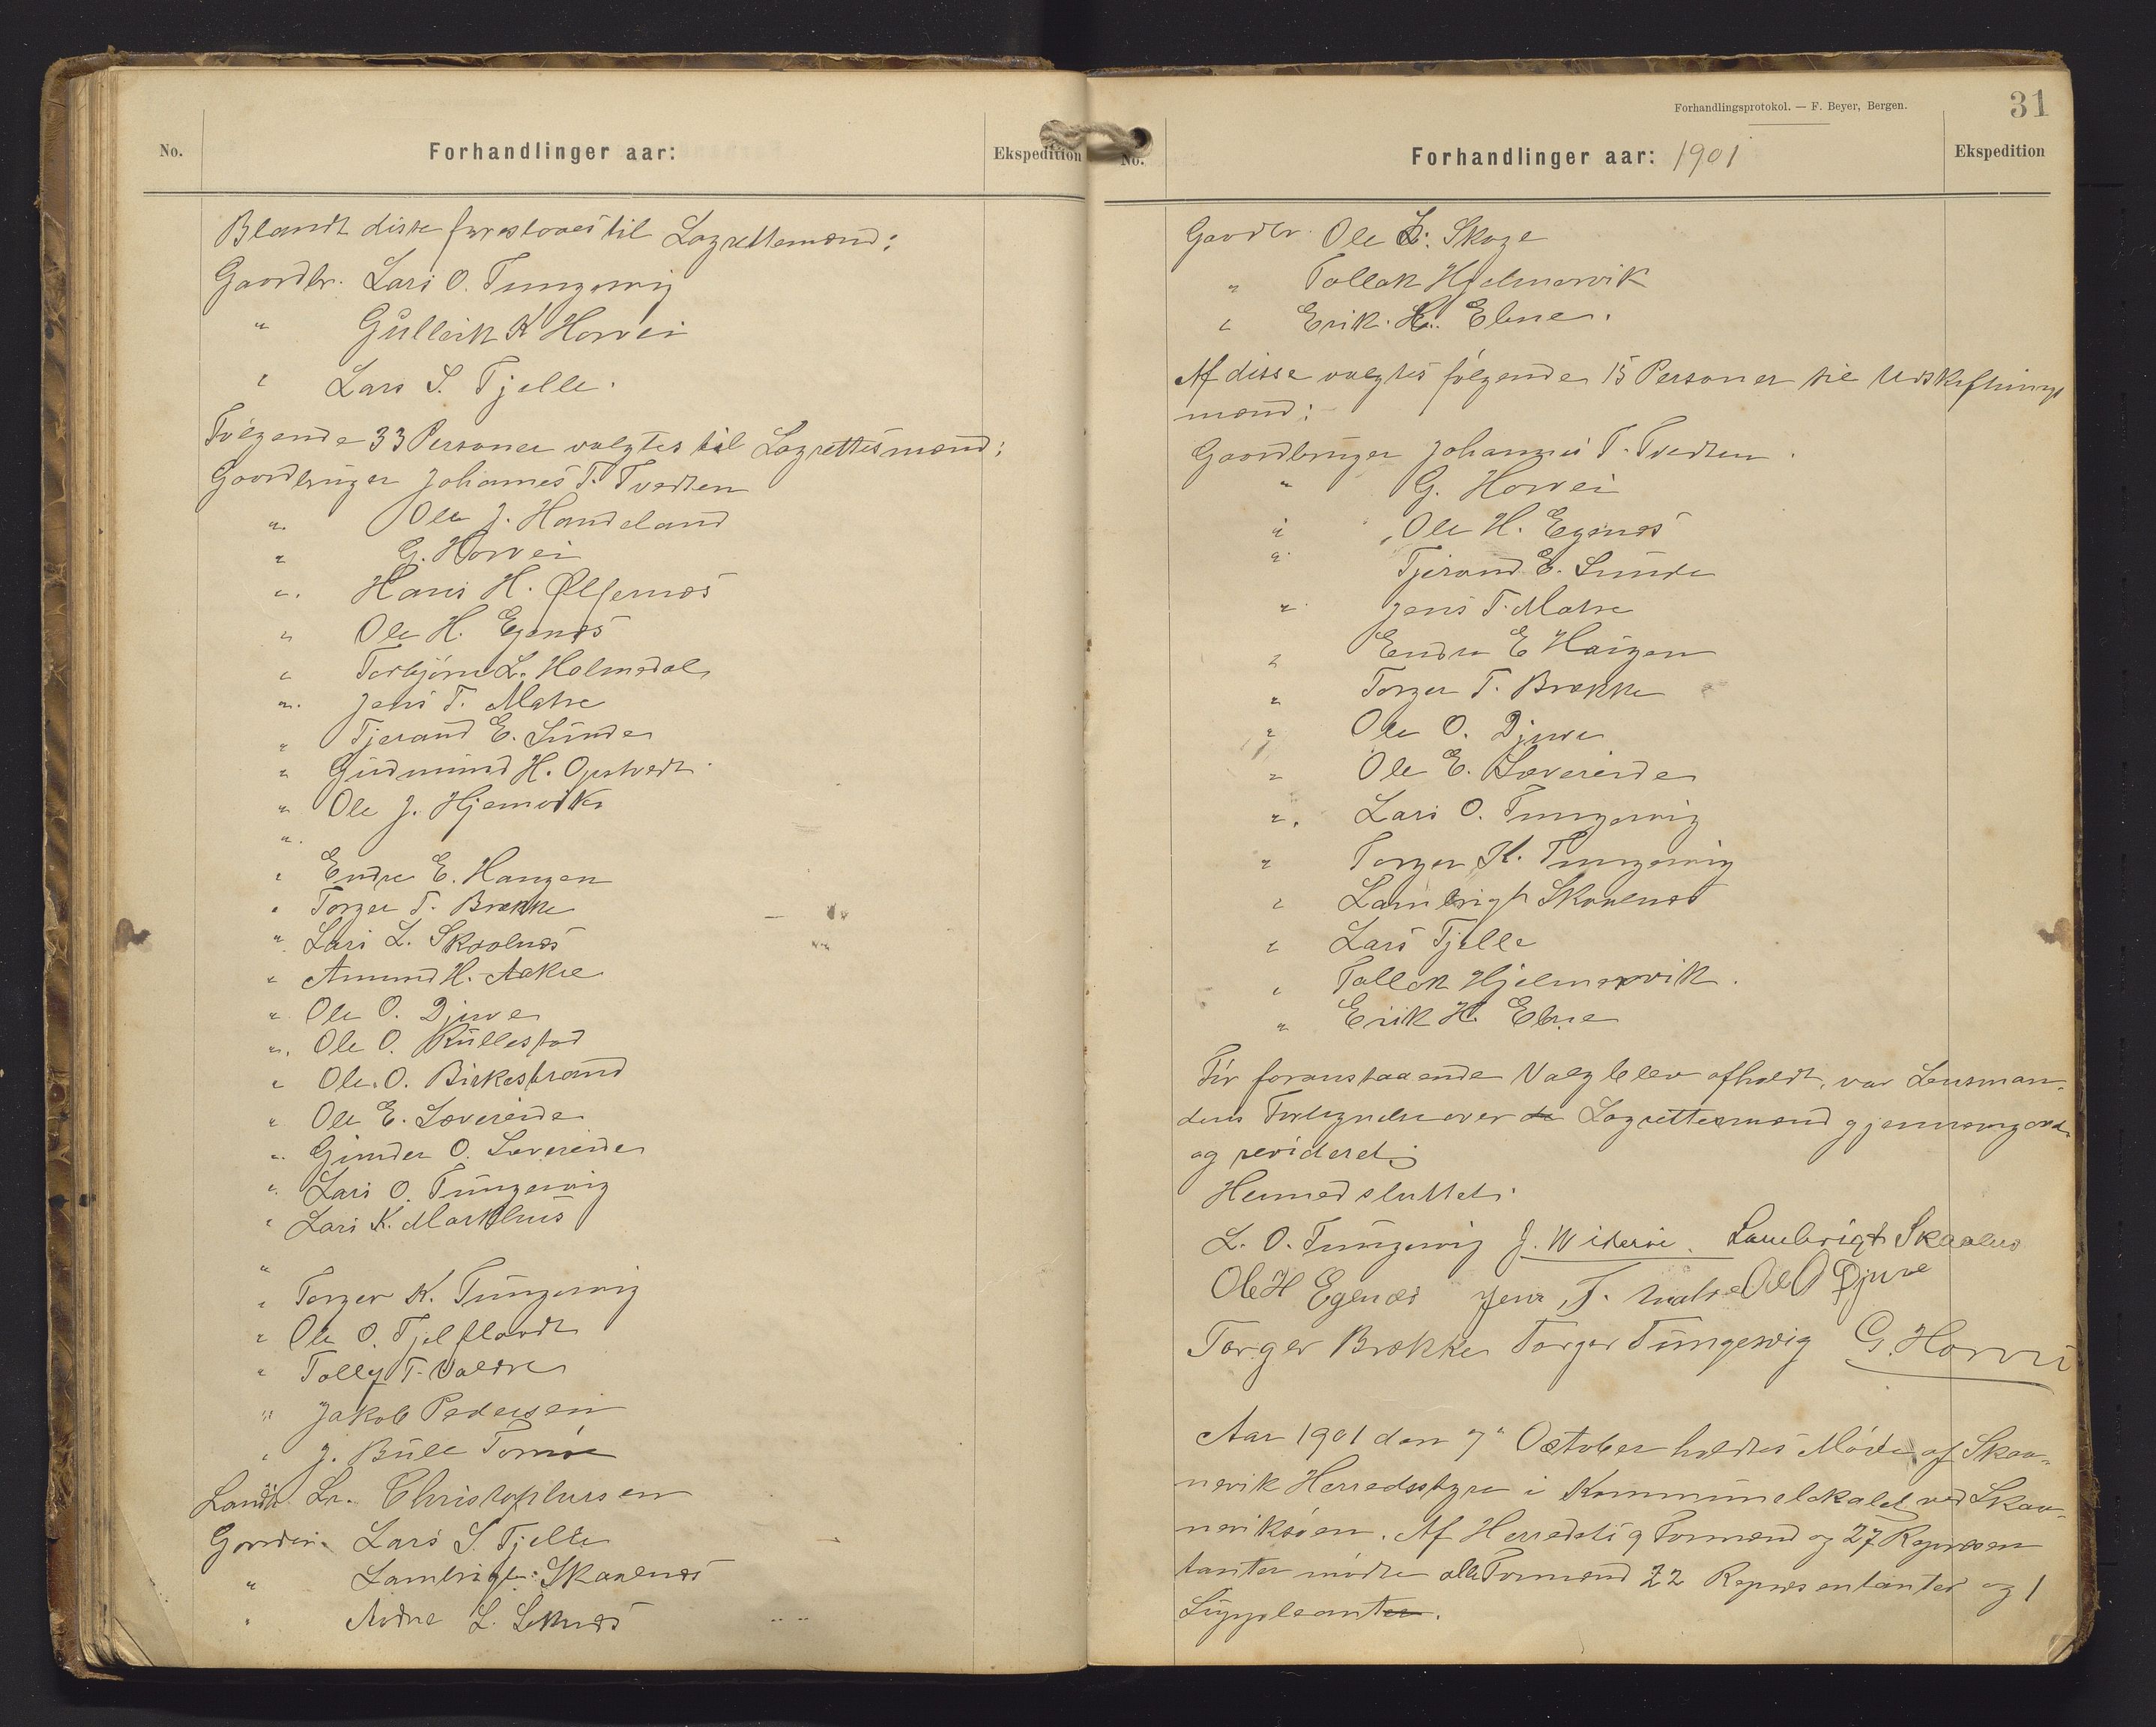 No.
Forhandlinger aar:
Ekspedition
Blandt disse foresloaes til Lagrettemænd:
Gaardbr. Lars O. Tungesvig
" Gulleik K Horvei
" Lars S. Tjelle.
Følgende 33 Personer valgtes til Lagrettesmænd:
Gaardbruger Johannes T. Tvedten
" Ole J. Handeland
" G. Horvei
" Hans H. Ølfernæs
" Ole H. Egenæs
" Torbjørn L. Holmedal
" Jens T. Matre
" Tjerand E. Sunde
" Gudmund H. Opstvedt
" Ole J. Hjemvik
"
" Endre E. Haugen
" Torger T. Brække
" Lars L. Skaalnæs
" Amund H. Aakre
" Ole O. Djuve
" Ole O. Rullestad
" Ole O. Birkestrand
" Ole E. Løvereide
" Gunder O. Løvereide
" Lars O. Tungesvig
" Lars K. Markhus
"
" Torger K. Tungesvig
" Ole O. Fjelflaadt
" T. Valdre
" Jakob Pedersen
" J. Bull
Landh. Chr. Christophersen
Gaardbr. Lars S. Tjelle
" Lambrigt Skaalnæs
" Andre L.
Forhandlingsprotokol. — F. Beyer, Bergen.
31
No.
Forhandlinger aar: 1901
Ekspedition
Gaardbr. Ole L. Skoge
" Tollak Hjelmervik
" Erik H. Ebne.
Af disse valgtes følgende 15 Personer til Udskiftnings
mænd:
Gaardbruger Johannes T. Tvedten.
" G. Horvei
" Ole H. Egenæs
" Tjerand E. Sunde
" Jens T. Matre
" Endre E Haugen
" Torger T. Brække
" Ole O. Djuve
" Ole E. Løvereide
" Lars O. Tungesvig
" Torger K. Tungesvig
" Lambrigt Skaalnæs
" Lars Tjelle
" Tollak Hjelmervik.
" Erik H. Ebne
Før foranstaaende Valg blev afholdt, var Lensman-
dens Fortegnelse over de Lagrettesmænd gjennemgaaet
og revideret.
Hermed sluttet.
L. O. Tungesvig J. Miderøe Lambrigt Skaalnes
Ole H Egenæs Jens T. Matre Ole O Djuve
Torger Brække Torger Tungesvig G. Horvei
Aar 1901 den 7de October holdtes Møde af Skaa-
nevik Herredsstyre i Kommunelokalet ved Skaa-
neviksøen. Af Herredets 9 Formænd og 27 Repræsen
tanter mødte alle Formænd 22 Repræsentanter og 1
Suppleanter.